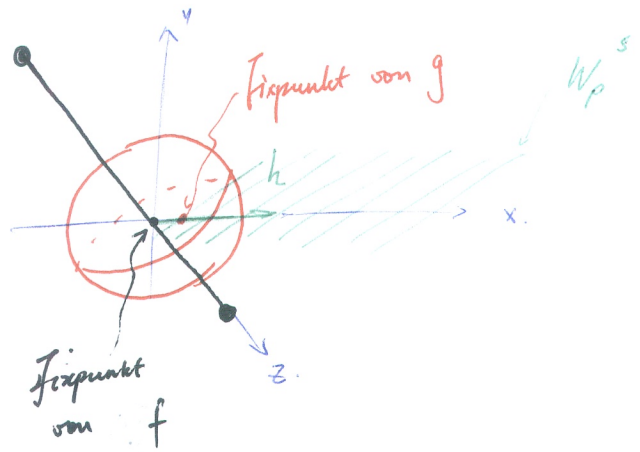 y
Fixpunkt von g
W_p^s
h
x.
z.
Fixpunkt
von f